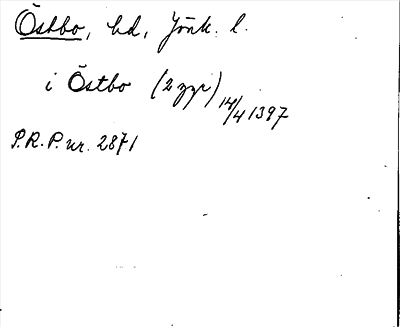 Östbo, hd, Jönk. l.
i Östbo (2 ggr) 14/4 1397
P.R.P. nr. 2871